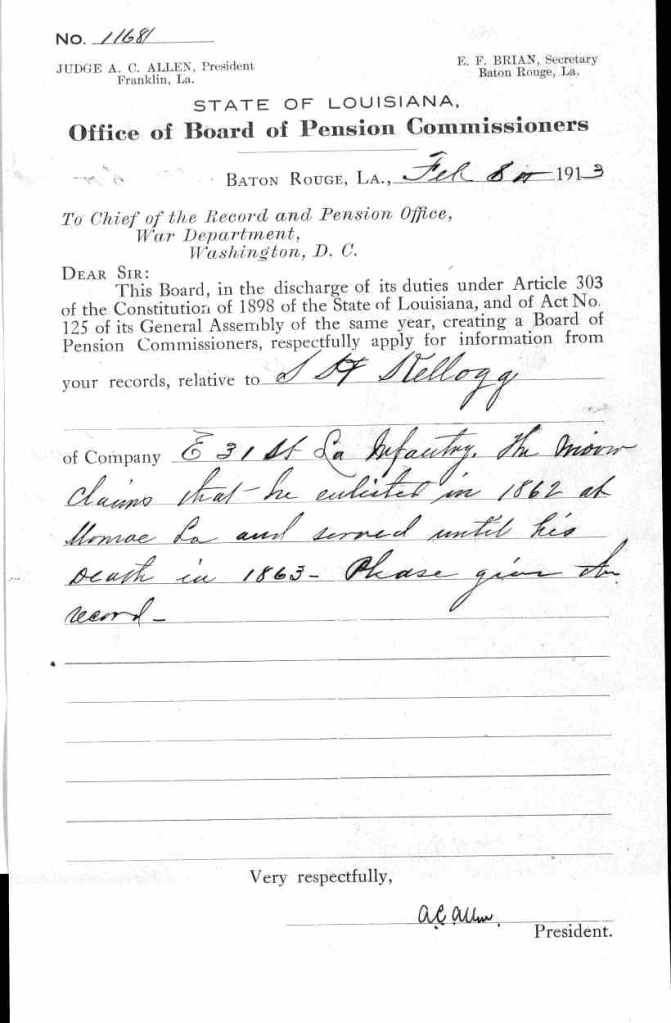 No. 11681
JUDGE A. C. ALLEN, President
Franklin, La.
E. F. BRIAN, Secretary
Baton Rouge, La.
STATE OF LOUISIANA,
Office of Board of Pension Commissioners
BATON ROUGE, LA., Feb 8 1913
To Chief of the Record and Pension Office,
War Department,
Washington, D. C.
DEAR SIR:
This Board, in the discharge of its duties under Article 303
of the Constitution of 1898 of the State of Louisiana, and of Act No.
125 of its General Assembly of the same year, creating a Board of
Pension Commissioners, respectfully apply for information from
your records, relative to S H Kellogg
of Company E 31st La Infantry. The
claims that he enlisted in 1862 at
Monroe La and served until his
Death in 1863 - Please give the
record -
Very respectfully,
A.C. Allen
President.